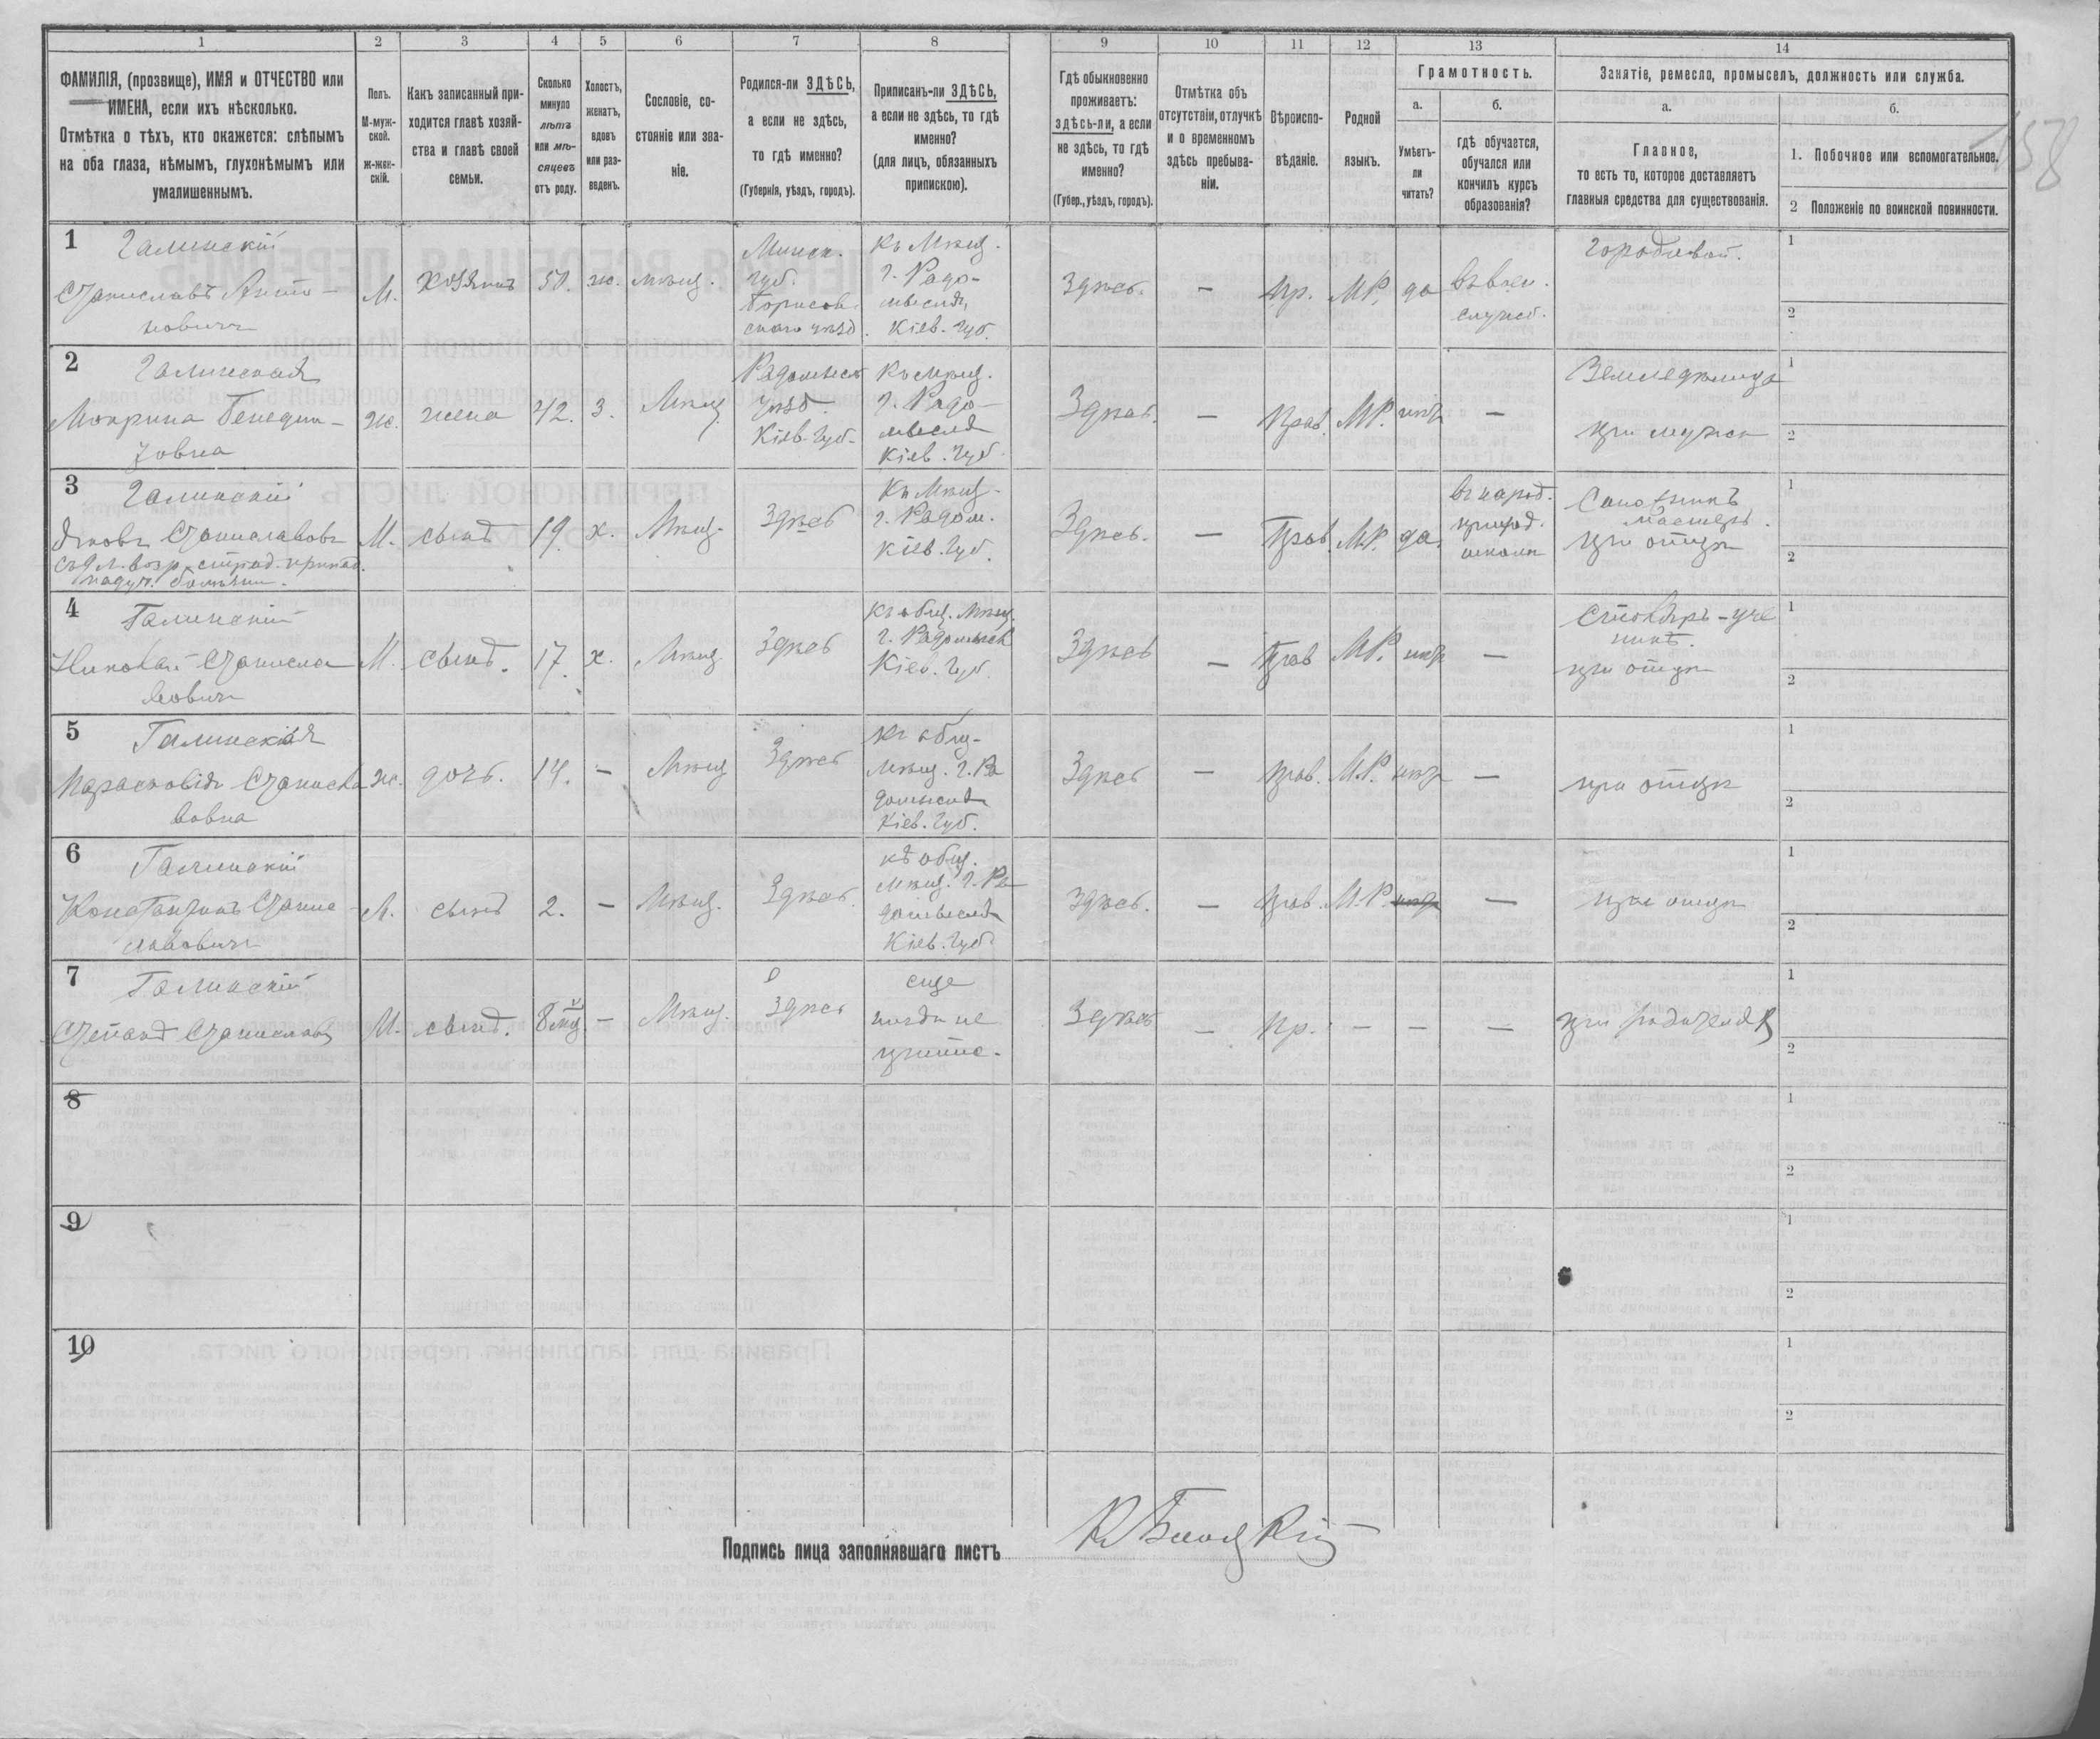 158
1
2
3
4
5
6
7
8
9
10
11
12
13
14
ФАМИЛІЯ, (прозвище), ИМЯ и ОТЧЕСТВО или
ИМЕНА, если ихъ нѣсколько.
Отмѣтка о тѣхъ, кто окажется: слѣпымъ
на оба глаза, нѣмымъ, глухонѣмымъ или
умалишеннымъ.
Полъ.
М-муж-
ской.
ж-жен-
скій.
Какъ записанный при-
ходится главѣ хозяй-
ства и главѣ своей
семьи.
Сколько
минуло
лѣтъ
или мѣ-
сяцевъ
отъ роду.
Холостъ,
женатъ,
вдовъ
или раз-
веденъ.
Сословіе, со-
стояніе или зва-
ніе.
Родился-ли ЗДѢСЬ,
а если не здѣсь,
то гдѣ именно?
(Губернія, уѣздъ, городъ).
Приписанъ-ли ЗДѢСЬ,
а если не здѣсь, то гдѣ
именно?
(для лицъ, обязанныхъ
припискою).
Гдѣ обыкновенно
проживаетъ:
здѣсь-ли, а если
не здѣсь, то гдѣ
именно?
(Губер., уѣздъ, городъ).
Отмѣтка объ
отсутствіи, отлучкѣ
и о временномъ
здѣсь пребыва-
ніи.
Вѣроиспо-
вѣданіе.
Родной
языкъ.
Грамотность.
а.
Умѣетъ-
ли
читать?
б.
гдѣ обучается,
обучался или
кончилъ курсъ
образованія?
Занятіе, ремесло, промыселъ, должность или служба.
а.
Главное,
то есть то, которое доставляетъ
главныя средства для существованія.
б.
1. Побочное или вспомогательное.
2 Положеніе по воинской повинности.
1
Галинскій
Станиславъ Анто-
новичъ
М.
хозяинъ
50.
ж.
мѣщ.
Минск.
губ.
Борисов-
скаго уѣзд.
Къ Мѣщ.
г. Радо-
мысля,
Кіев. Губ.
Здѣсь.
—
Пр.
МР.
да
въ воен.
служб.
Городовой.
1
2
2
Галинская
Мокрина Бенедик-
товна
Ж.
жена
42.
З.
Мѣщ.
Радомысл.
Уѣзд.
Кіев. Губ.
Къ мѣщ.
г. Радо-
мысля
Кіев. Губ.
Здѣсь.
—
Прав.
МР.
нѣтъ
—
Земледѣлица
при мужѣ
1
2
3
Галинскій
Яковъ Станиславовъ
М.
сынъ
19.
х.
Мѣщ.
Здѣсь
Къ Мѣщ.
г. Радом.
Кіев. Губ.
Здѣсь.
—
Прав.
М.Р.
да.
въ народ.
приход.
школѣ
Сапожникъ
мастеръ.
при отцѣ
1
2
4
Галинскій
Николай Станисла
вовичъ
М.
сынъ.
17.
х.
Мѣщ.
Здѣсь
Къ общ. Мѣщ.
г. Радомысля
Кіев. Губ.
Здѣсь
—
Прав
М.Р.
нѣтъ
—
Столяръ-уче
никъ.
при отцѣ
1
2
5
Галинская
Парасковія Станисла
вовна
Ж.
дочь.
14.
—
Мѣщ
Здѣсь
Къ общ.
Мѣщ. г. Ра
домысля
Кіев. Губ.
Здѣсь
—
Прав.
М.Р.
нѣтъ
—
при отцѣ
1
2
6
Галинскій
Константинъ Станис
лавовичъ
М.
сынъ
2.
—
Мѣщ.
Здѣсь.
къ общ.
мѣщ. г. Ра
домысля
Кіев. Губ.
Здѣсь.
—
Прав.
М.Р.
нѣтъ
—
при отцѣ
1
2
7
Галинскій
Степанъ Станиславъ
М.
сынъ.
8 мѣс.
—
Мѣщ.
Здѣсь
еще
не
припис.
Здѣсь
—
Пр.
—
—
—
при родителях
1
2
8
1
2
9
1
2
10
1
2
Подпись лица заполнявшаго листъ